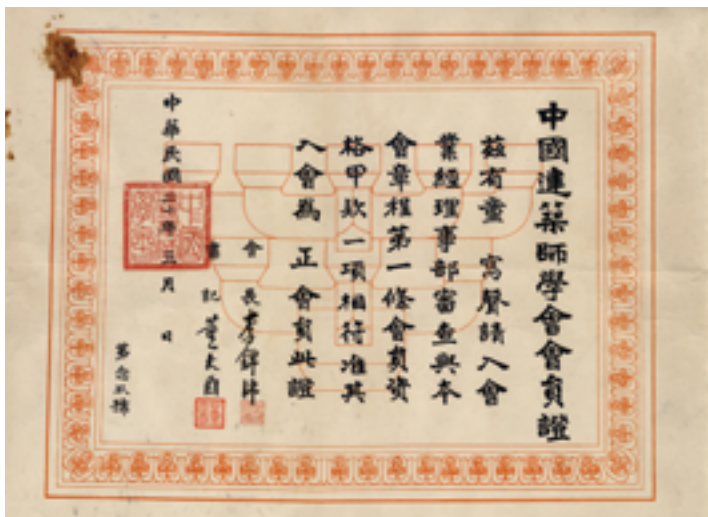 中國建築師學會會員證
茲有童寯聲請入會
業經理事部審查與本
會章程第一條會員資
格甲欵一項相符准其
入會為正會員此證
會長李錦沛
書記董大酉
中華民國 年三月 日
第 號